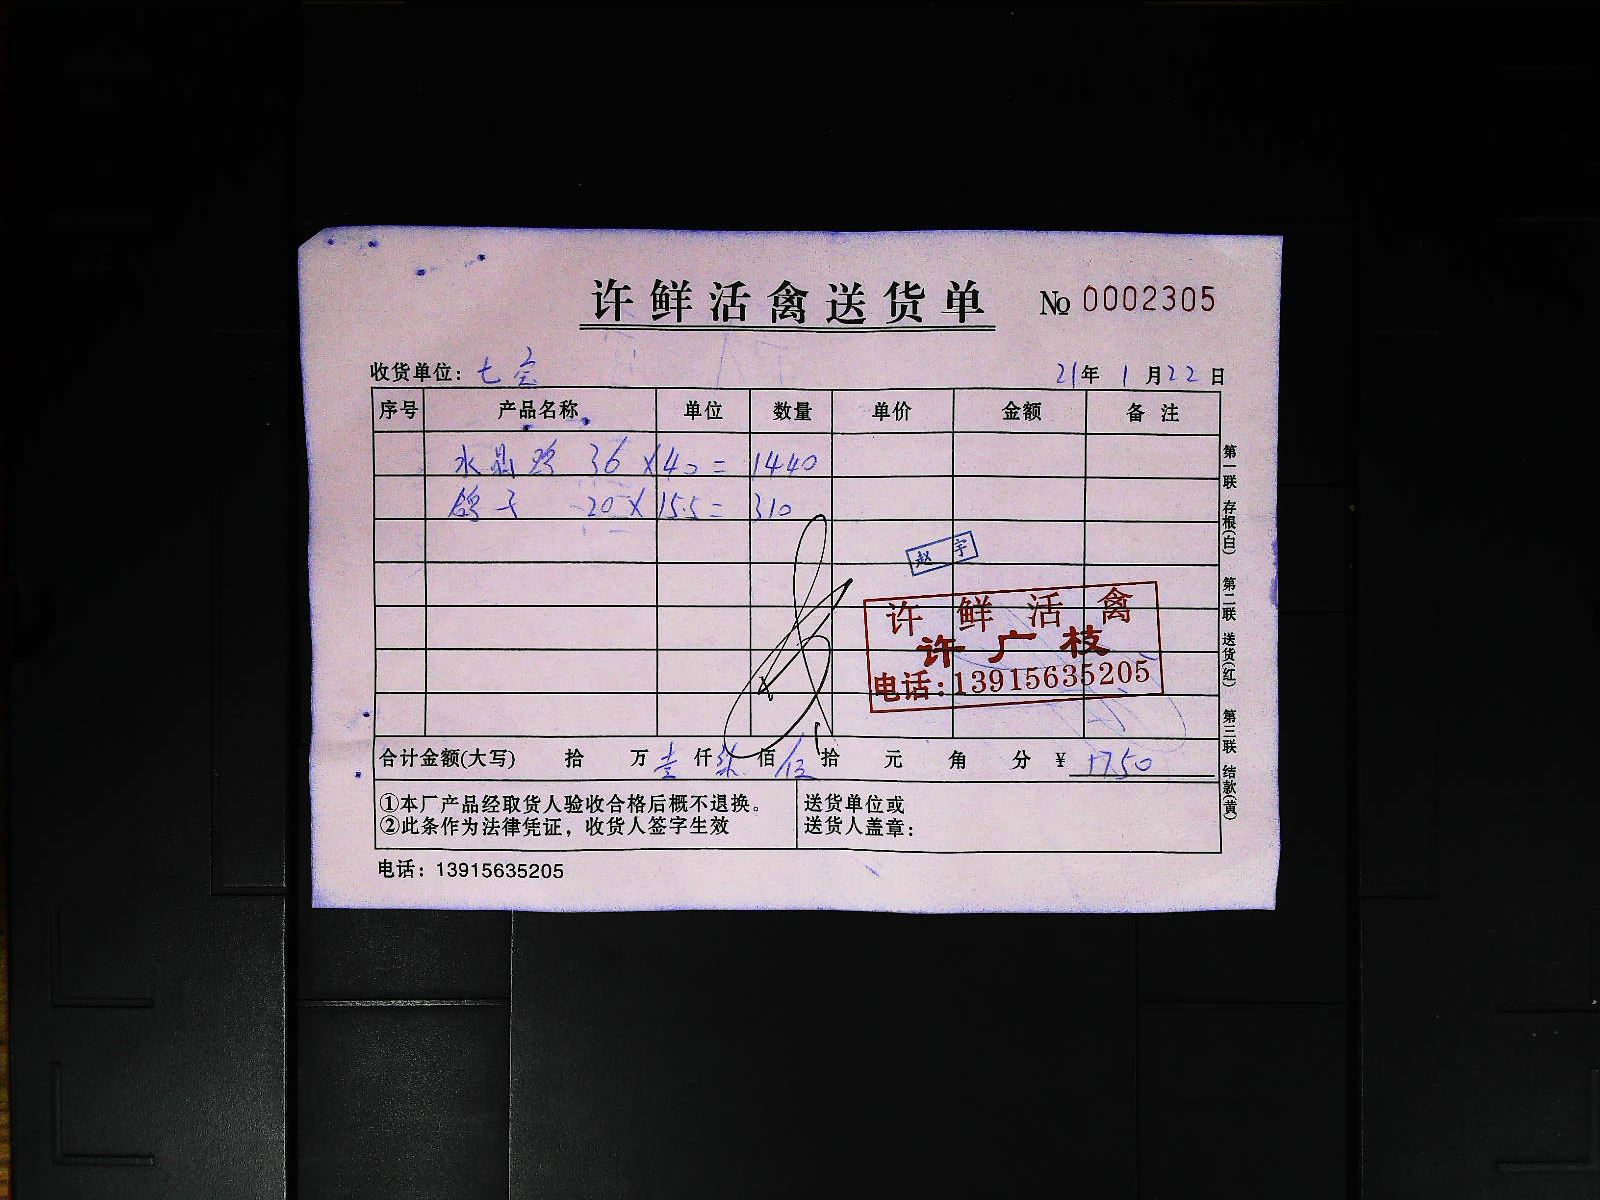 许鲜活禽送货单 № 0002305
收货单位：七宝 21年 1月22日
序号 产品名称 单位 数量 单价 金额 备注
水晶鸡 36×40=1440
鸽子 20×15.5=310
赵宇
许鲜活禽
许广枝
电话:13915635205
合计金额(大写) 拾 万壹仟柒佰伍拾 元 角 分 ¥ 1750
①本厂产品经取货人验收合格后概不退换。
②此条作为法律凭证，收货人签字生效
送货单位或
送货人盖章：
电话：13915635205
第一联 存根(白) 第二联 送货(红) 第三联 结款(黄)